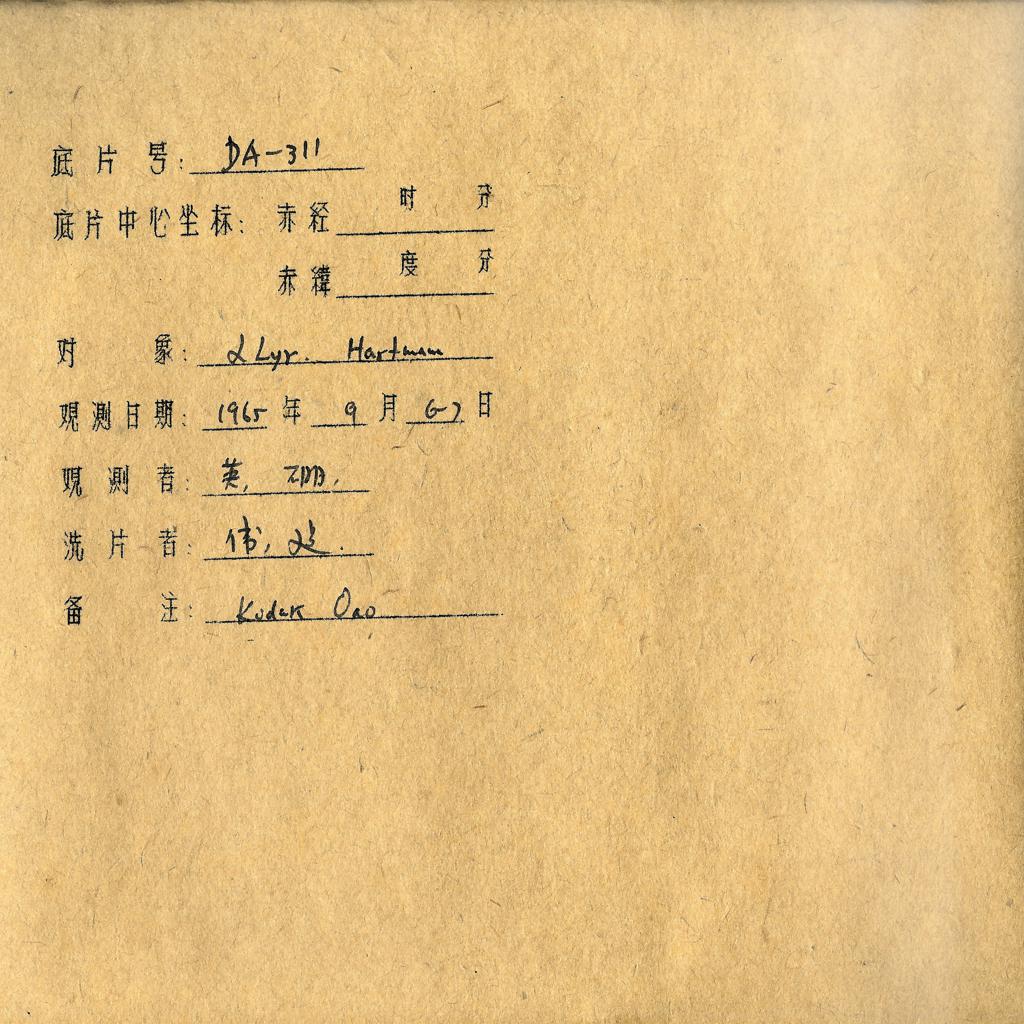 底片号: DA-311
时 分
底片中心坐标: 赤经
度 分
赤緯
对象: α Lyr. Hartman
观测日期: 1965 年 9 月 6-7 日
观测者: 英,
洗片者: 伟,
备注: Kodak OaO